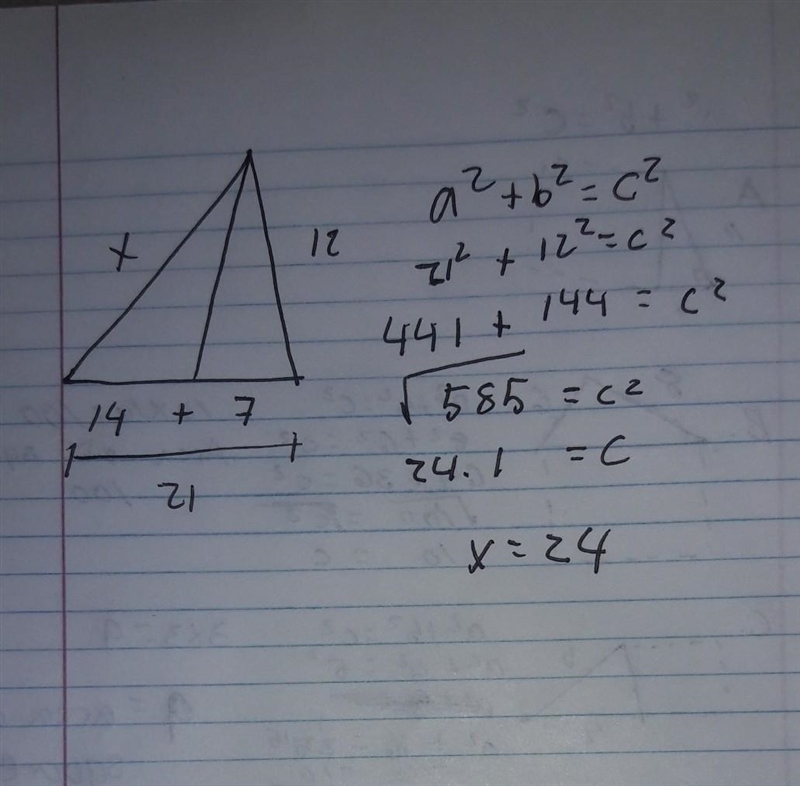 x
12
14 + 7
21
a² + b² = c²
21² + 12² = c²
441 + 144 = c²
√585 = c²
24.1 = c
x = 24